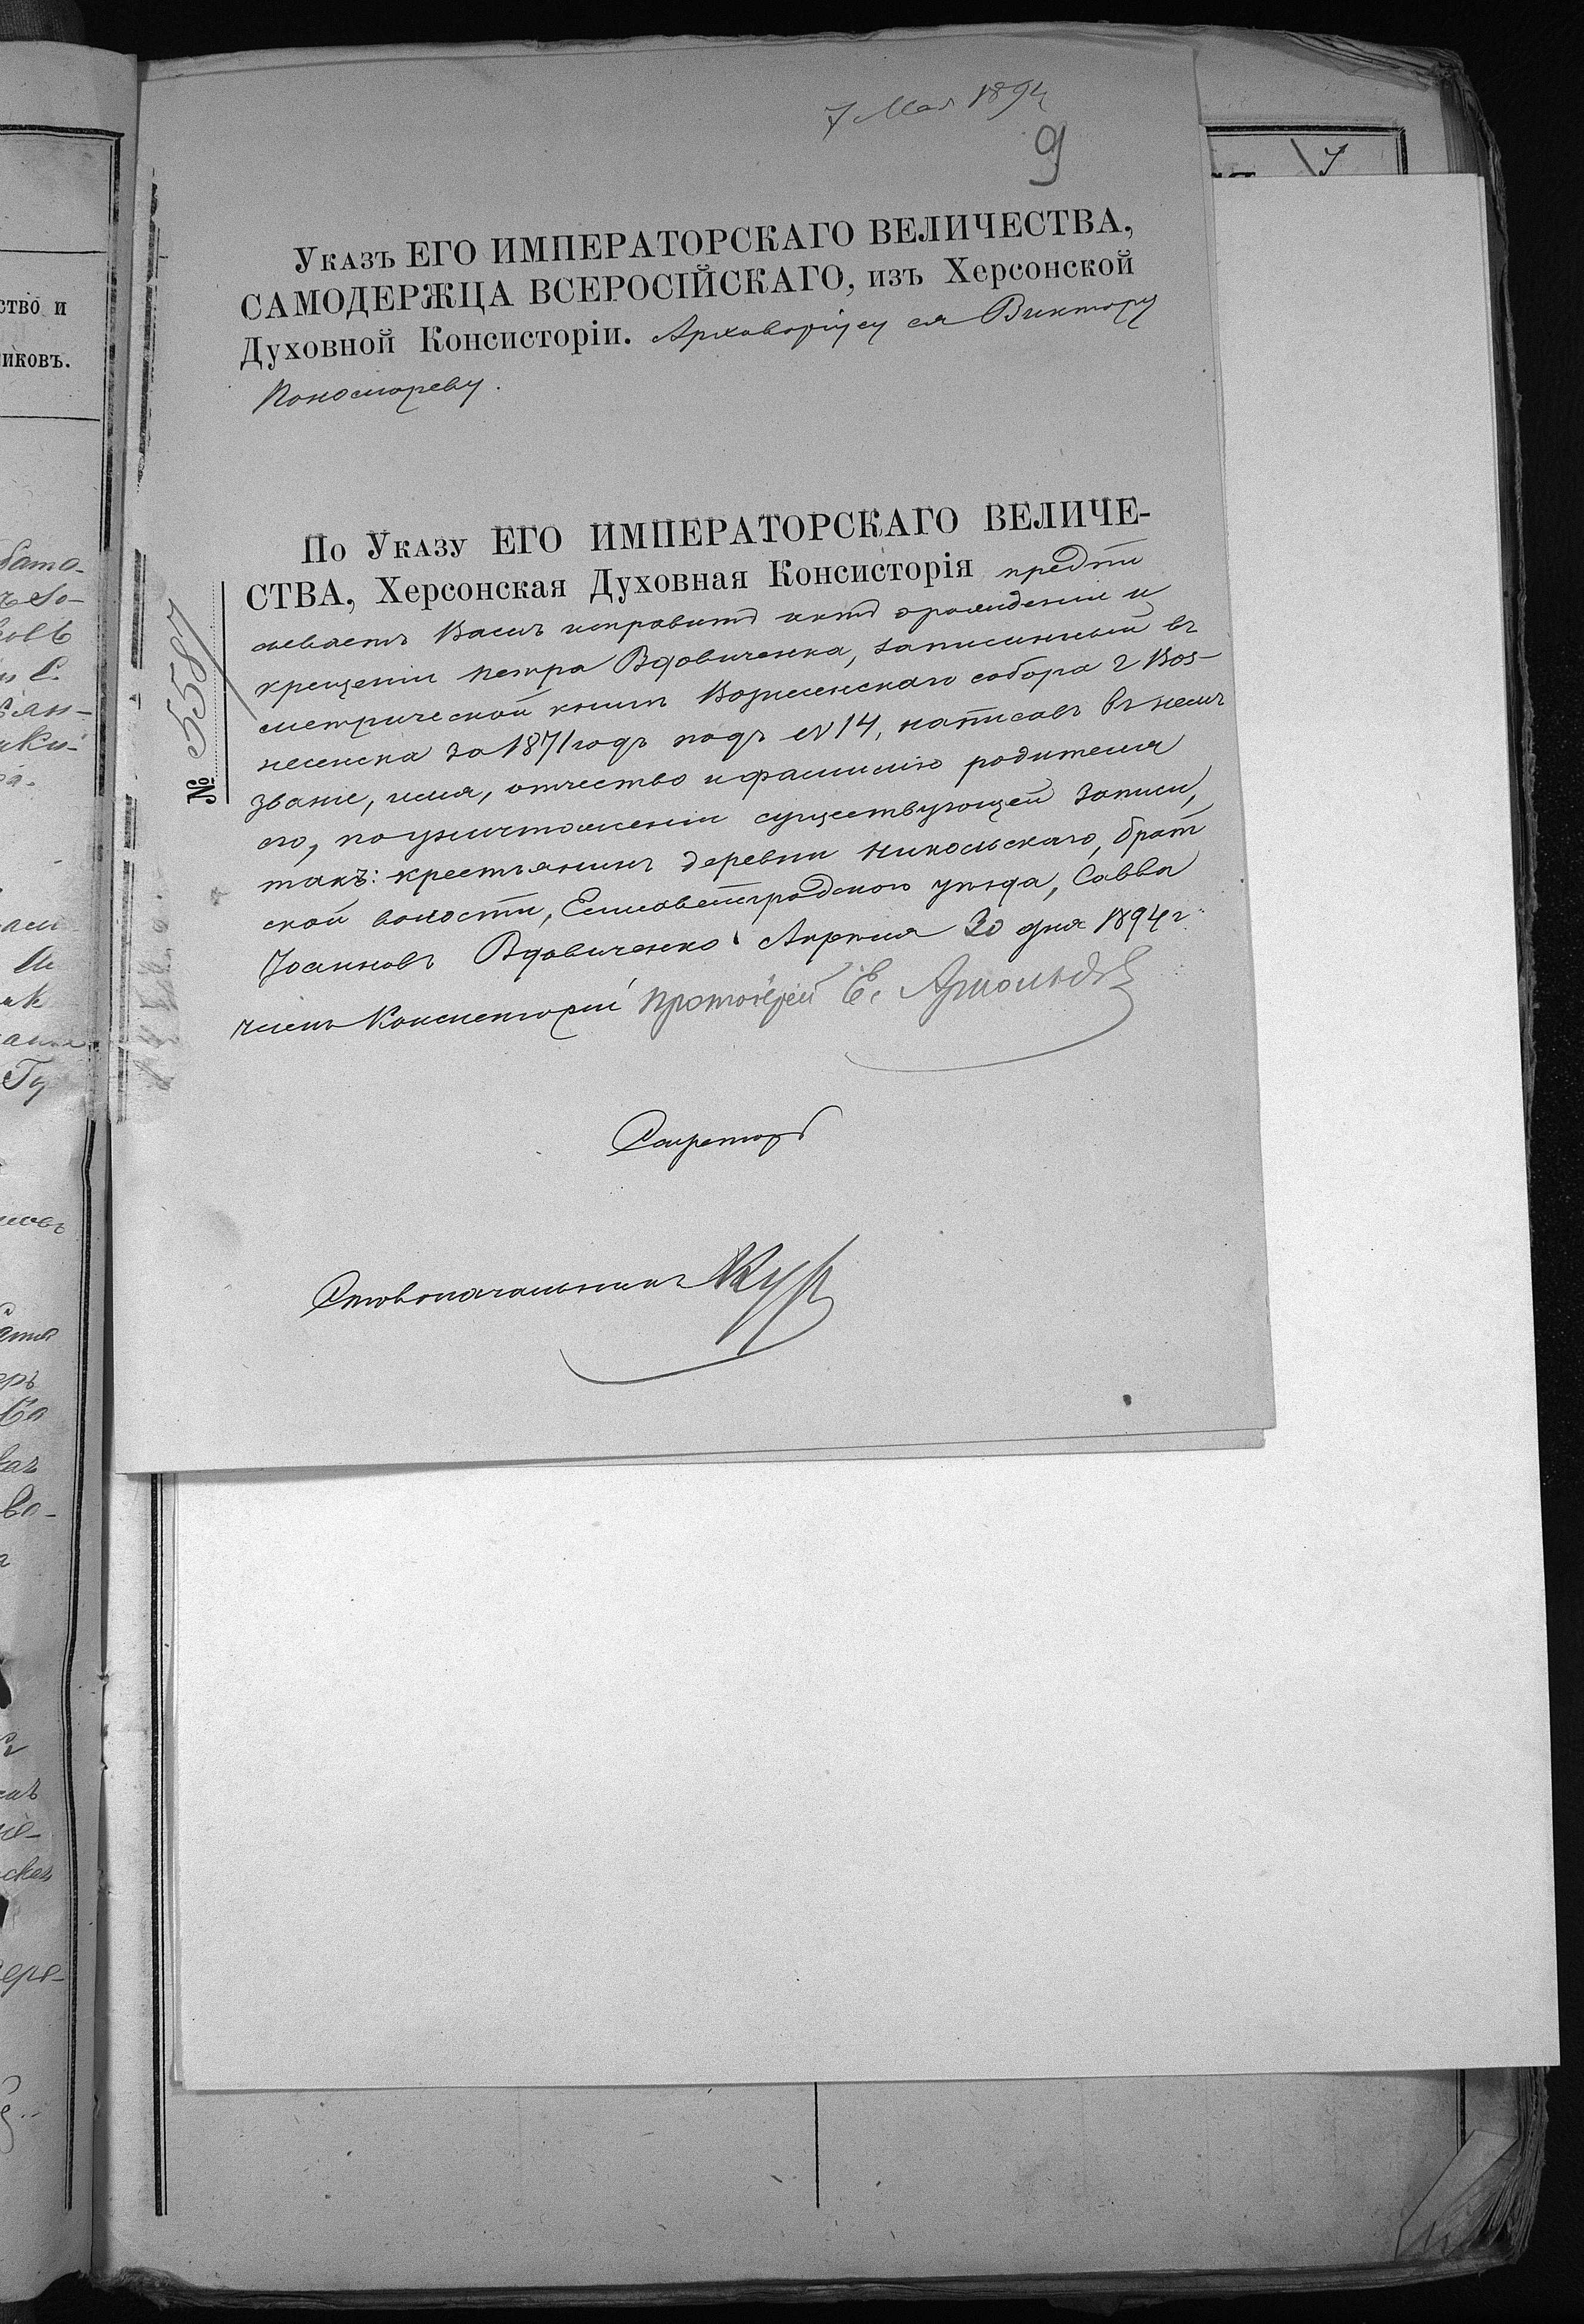 7 Мая 1894
9
7
Указъ ЕГО ИМПЕРАТОРСКАГО ВЕЛИЧЕСТВА,
САМОДЕРЖЦА ВСЕРОСІЙСКАГО, изъ Херсонской
Духовной Консисторіи. Архиваріусу ея Виктору
Пономореву.
По Указу ЕГО ИМПЕРАТОРСКАГО ВЕЛИЧЕ-
СТВА, Херсонская Духовная Консисторія предпи
№ 5587
сываетъ Вамъ исправить актъ о рожденіи и
крещеніи Петра Вдовиченка, записанный въ
метрической книгѣ Вознесенскаго собора г Воз-
несенска за 1871 годъ подъ № 14, написавъ въ немъ
званіе, имя, отчество и фамилію родителя
его, по уничтоженіи существующей записи,
такъ: крестьянинъ деревни Никольскаго, брат
ской волости, Елисаветградскаго уѣзда, Савва
Іоанновъ Вдовиченко. Апрѣля 30 дня 1894 г.
Членъ Консисторіи Протоіерей Е. Арнольдъ
Секретарь
Столоначальникъ
ство и
иковъ.